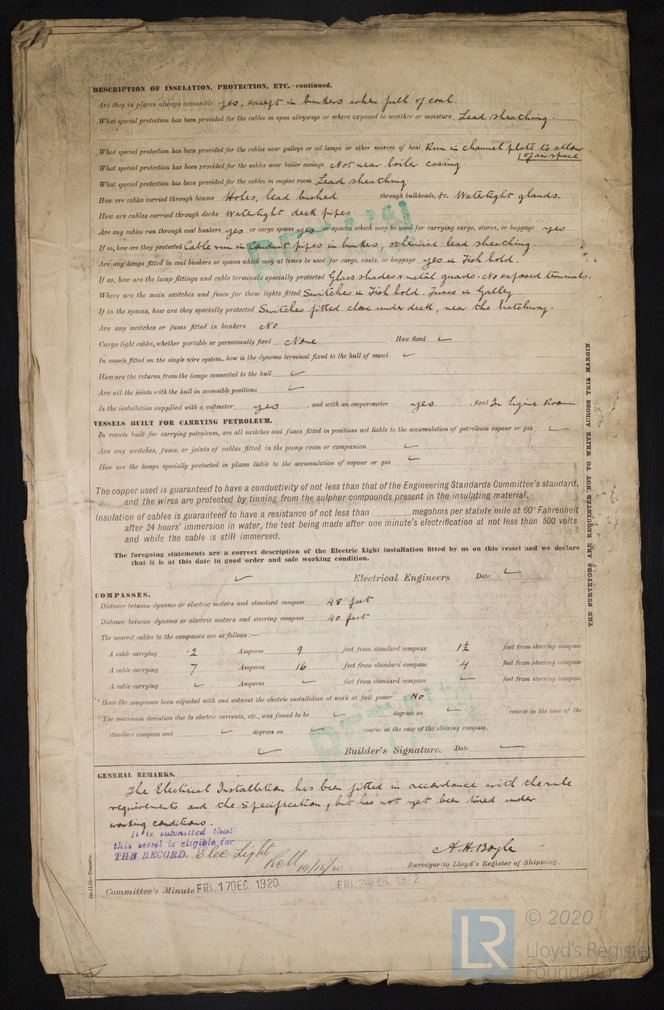 DESCRIPTION OF INSULATION, PROTECTION, ETC.—continued.
Are they in places always accessible yes, except in bunkers when full of coal.
What special protection has been provided for the cables in open alleyways or where exposed to weather or moisture Lead sheathing.
What special protection has been provided for the cables near galleys or oil lamps or other sources of heat Run in channel plate to allow
1" of air space
What special protection has been provided for the cables near boiler casings Not near boiler casing
What special protection has been provided for the cables in engine room Lead sheathing
How are cables carried through beams Holes, lead bushed through bulkheads, &c. Watertight glands.
How are cables carried through decks Watertight deck pipes
Are any cables run through coal bunkers yes or cargo spaces yes or spaces which may be used for carrying cargo, stores, or baggage yes
If so, how are they protected Cable run in conduit pipes in bunkers, otherwise lead sheathing.
Are any lamps fitted in coal bunkers or spaces which may at times be used for cargo, coals, or baggage yes in Fish hold.
If so, how are the lamp fittings and cable terminals specially protected Glass shades & metal guards. No exposed terminals.
Where are the main switches and fuses for these lights fitted Switches in Fish hold. Fuses in Galley.
If in the spaces, how are they specially protected Switches fitted close under deck, near the hatchway.
Are any switches or fuses fitted in bunkers No
Cargo light cables, whether portable or permanently fixed None How fixed ✓
In vessels fitted on the single wire system, how is the dynamo terminal fixed to the hull of vessel ✓
How are the returns from the lamps connected to the hull ✓
Are all the joints with the hull in accessible positions ✓
Is the installation supplied with a voltmeter yes, and with an amperemeter yes, fixed In Engine Room
VESSELS BUILT FOR CARRYING PETROLEUM.
In vessels built for carrying petroleum, are all switches and fuses fitted in positions not liable to the accumulation of petroleum vapour or gas ✓
Are any switches, fuses, or joints of cables fitted in the pump room or companion ✓
How are the lamps specially protected in places liable to the accumulation of vapour or gas ✓
The copper used is guaranteed to have a conductivity of not less than that of the Engineering Standards Committee's standard,
and the wires are protected by tinning from the sulphur compounds present in the insulating material.
Insulation of cables is guaranteed to have a resistance of not less than megohms per statute mile at 60° Fahrenheit
after 24 hours' immersion in water, the test being made after one minute's electrification at not less than 500 volts
and while the cable is still immersed.
The foregoing statements are a correct description of the Electric Light installation fitted by us on this vessel and we declare
that it is at this date in good order and safe working condition.
✓ Electrical Engineers Date ✓
COMPASSES.
Distance between dynamo or electric motors and standard compass 48 feet
Distance between dynamo or electric motors and steering compass 40 feet
The nearest cables to the compasses are as follows:—
A cable carrying ·2 Amperes 9 feet from standard compass 1½ feet from steering compass
A cable carrying 7 Amperes 16 feet from standard compass 4 feet from steering compass
A cable carrying ✓ Amperes ✓ feet from standard compass ✓ feet from steering compass
Have the compasses been adjusted with and without the electric installation at work at full power No
The maximum deviation due to electric currents, etc., was found to be ✓ degrees on ✓ course in the case of the
standard compass and ✓ degrees on ✓ course in the case of the steering compass.
✓ Builder's Signature. Date ✓
GENERAL REMARKS.
The Electrical Installation has been fitted in accordance with the rule
requirements and the Specification, but has not yet been tried under
working conditions.
It is submitted that
this vessel is eligible for
THE RECORD. Elec Light
19/12/20
A. H. Boyle
Surveyor to Lloyd's Register of Shipping.
Committee's Minute FRI. 17 DEC. 1920 FRI. 24 FEB. 1922
THE SURVEYORS ARE REQUESTED NOT TO WRITE ACROSS THIS MARGIN
© 2020
LR Lloyd's Register
Foundation